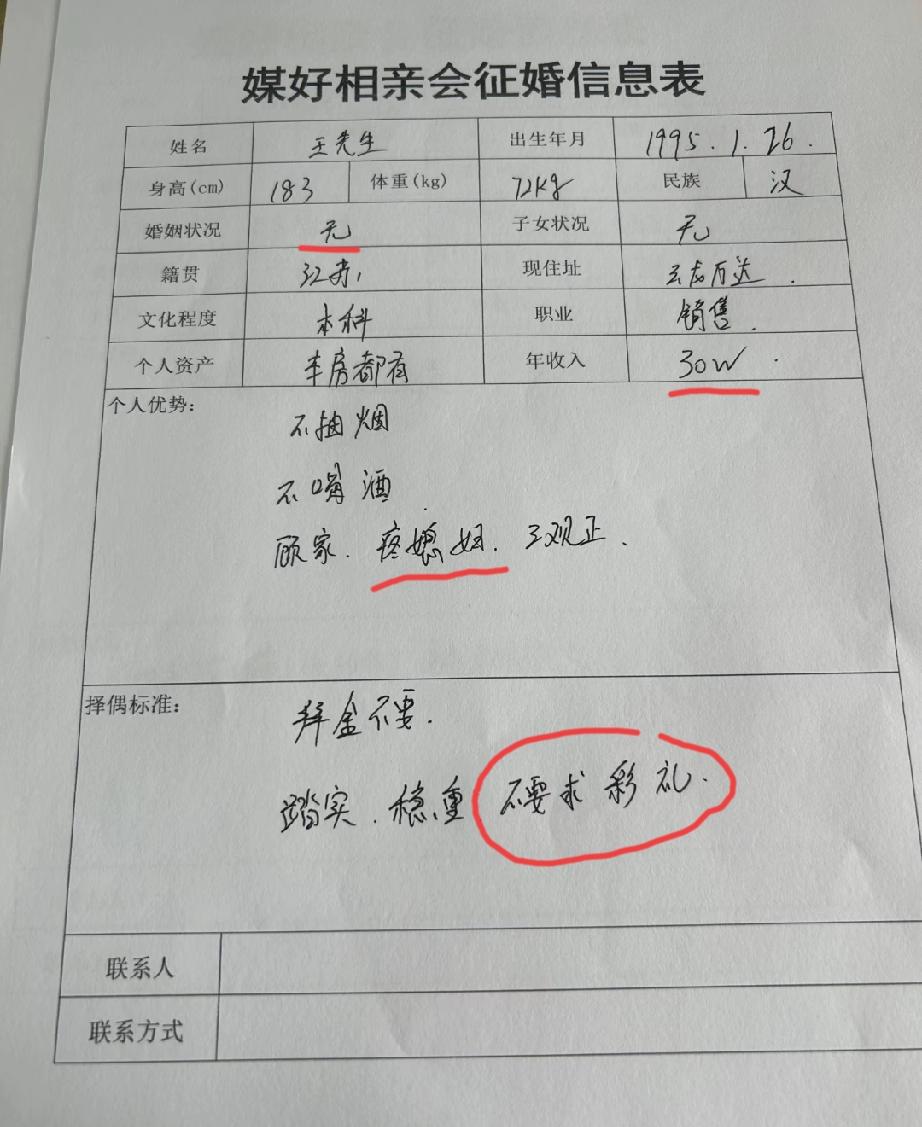 媒好相亲会征婚信息表
姓名 王先生 出生年月 1995.1.26.
身高(cm) 183 体重(kg) 72kg 民族 汉
婚姻状况 无 子女状况 无
籍贯 江苏 现住址 云龙万达.
文化程度 本科 职业 销售.
个人资产 车房都有 年收入 30W.
个人优势:
不抽烟
不喝酒
顾家.疼媳妇.三观正.
择偶标准:
拜金不要.
踏实.稳重 不要求彩礼.
联系人
联系方式